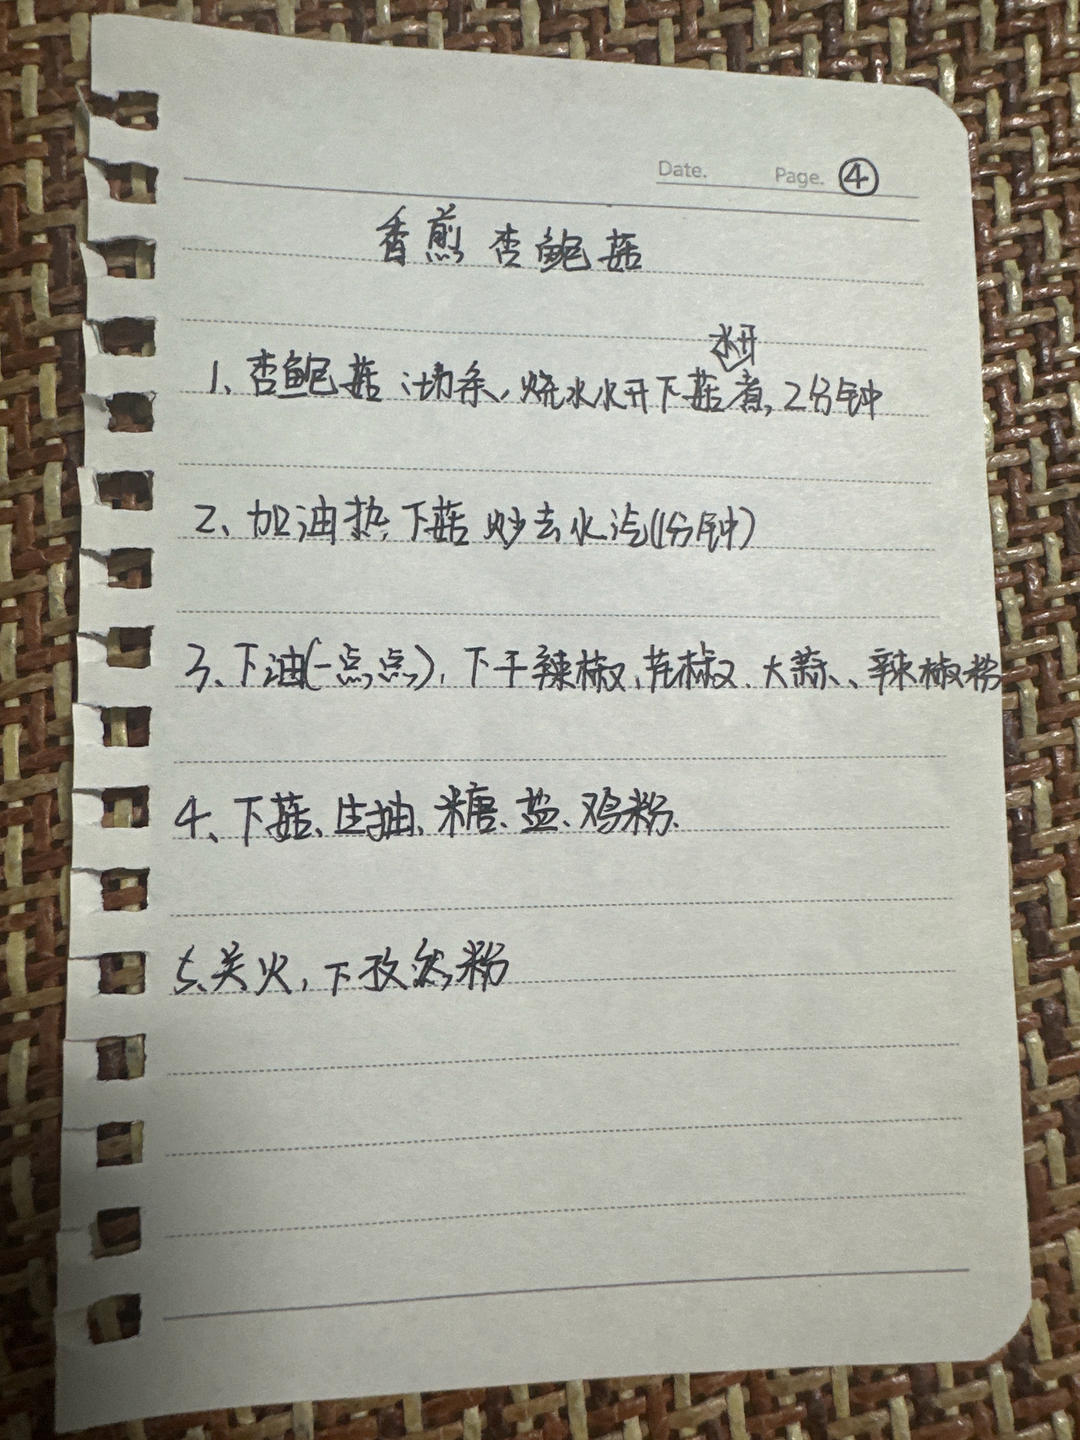 Date. Page. ④
香煎杏鲍菇
水开
1、杏鲍菇切条,烧水水开下菇煮,2分钟
2、加油热,下菇炒去水汽(1分钟)
3、下油(一点点),下干辣椒、花椒、大蒜、辣椒粉
4、下菇、生抽、糖、盐、鸡粉.
5、关火,下孜然粉